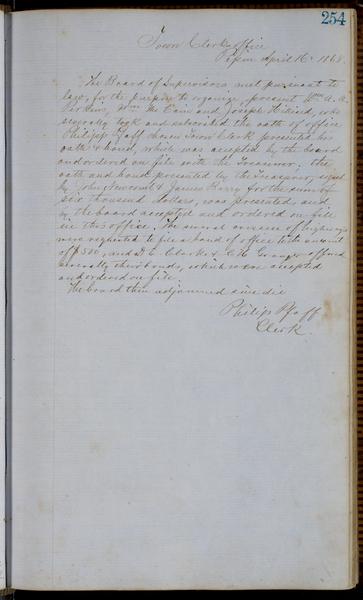 254
Town Clerks office
Pepin April 16th 1868.
The Board of Supervisors met pursuant to
law, for the purpose to organize, present Wm A. A.
Perkins, Wm McCain and Joseph, who
severally took and subscribed the oath of office
Philipp Pfaff chosen Town Clerk presented his
oath & bond, which was accepted by the board
and ordered on file with the Treasurer; the
oath and bond presented by the Treasurer, signed
by John Newcomb & James Barry for the sum of
six thousand dollars, was presented and
by the board accepted and ordered on file
in this office. The several overseers of highways
were required to file a bond of office to the amount
of $500, and D. C. Clarke & C. W. Granger offered
severally their bonds, which were accepted
and ordered on file.
The board then adjourned sine die
Philip Pfaff
Clerk.